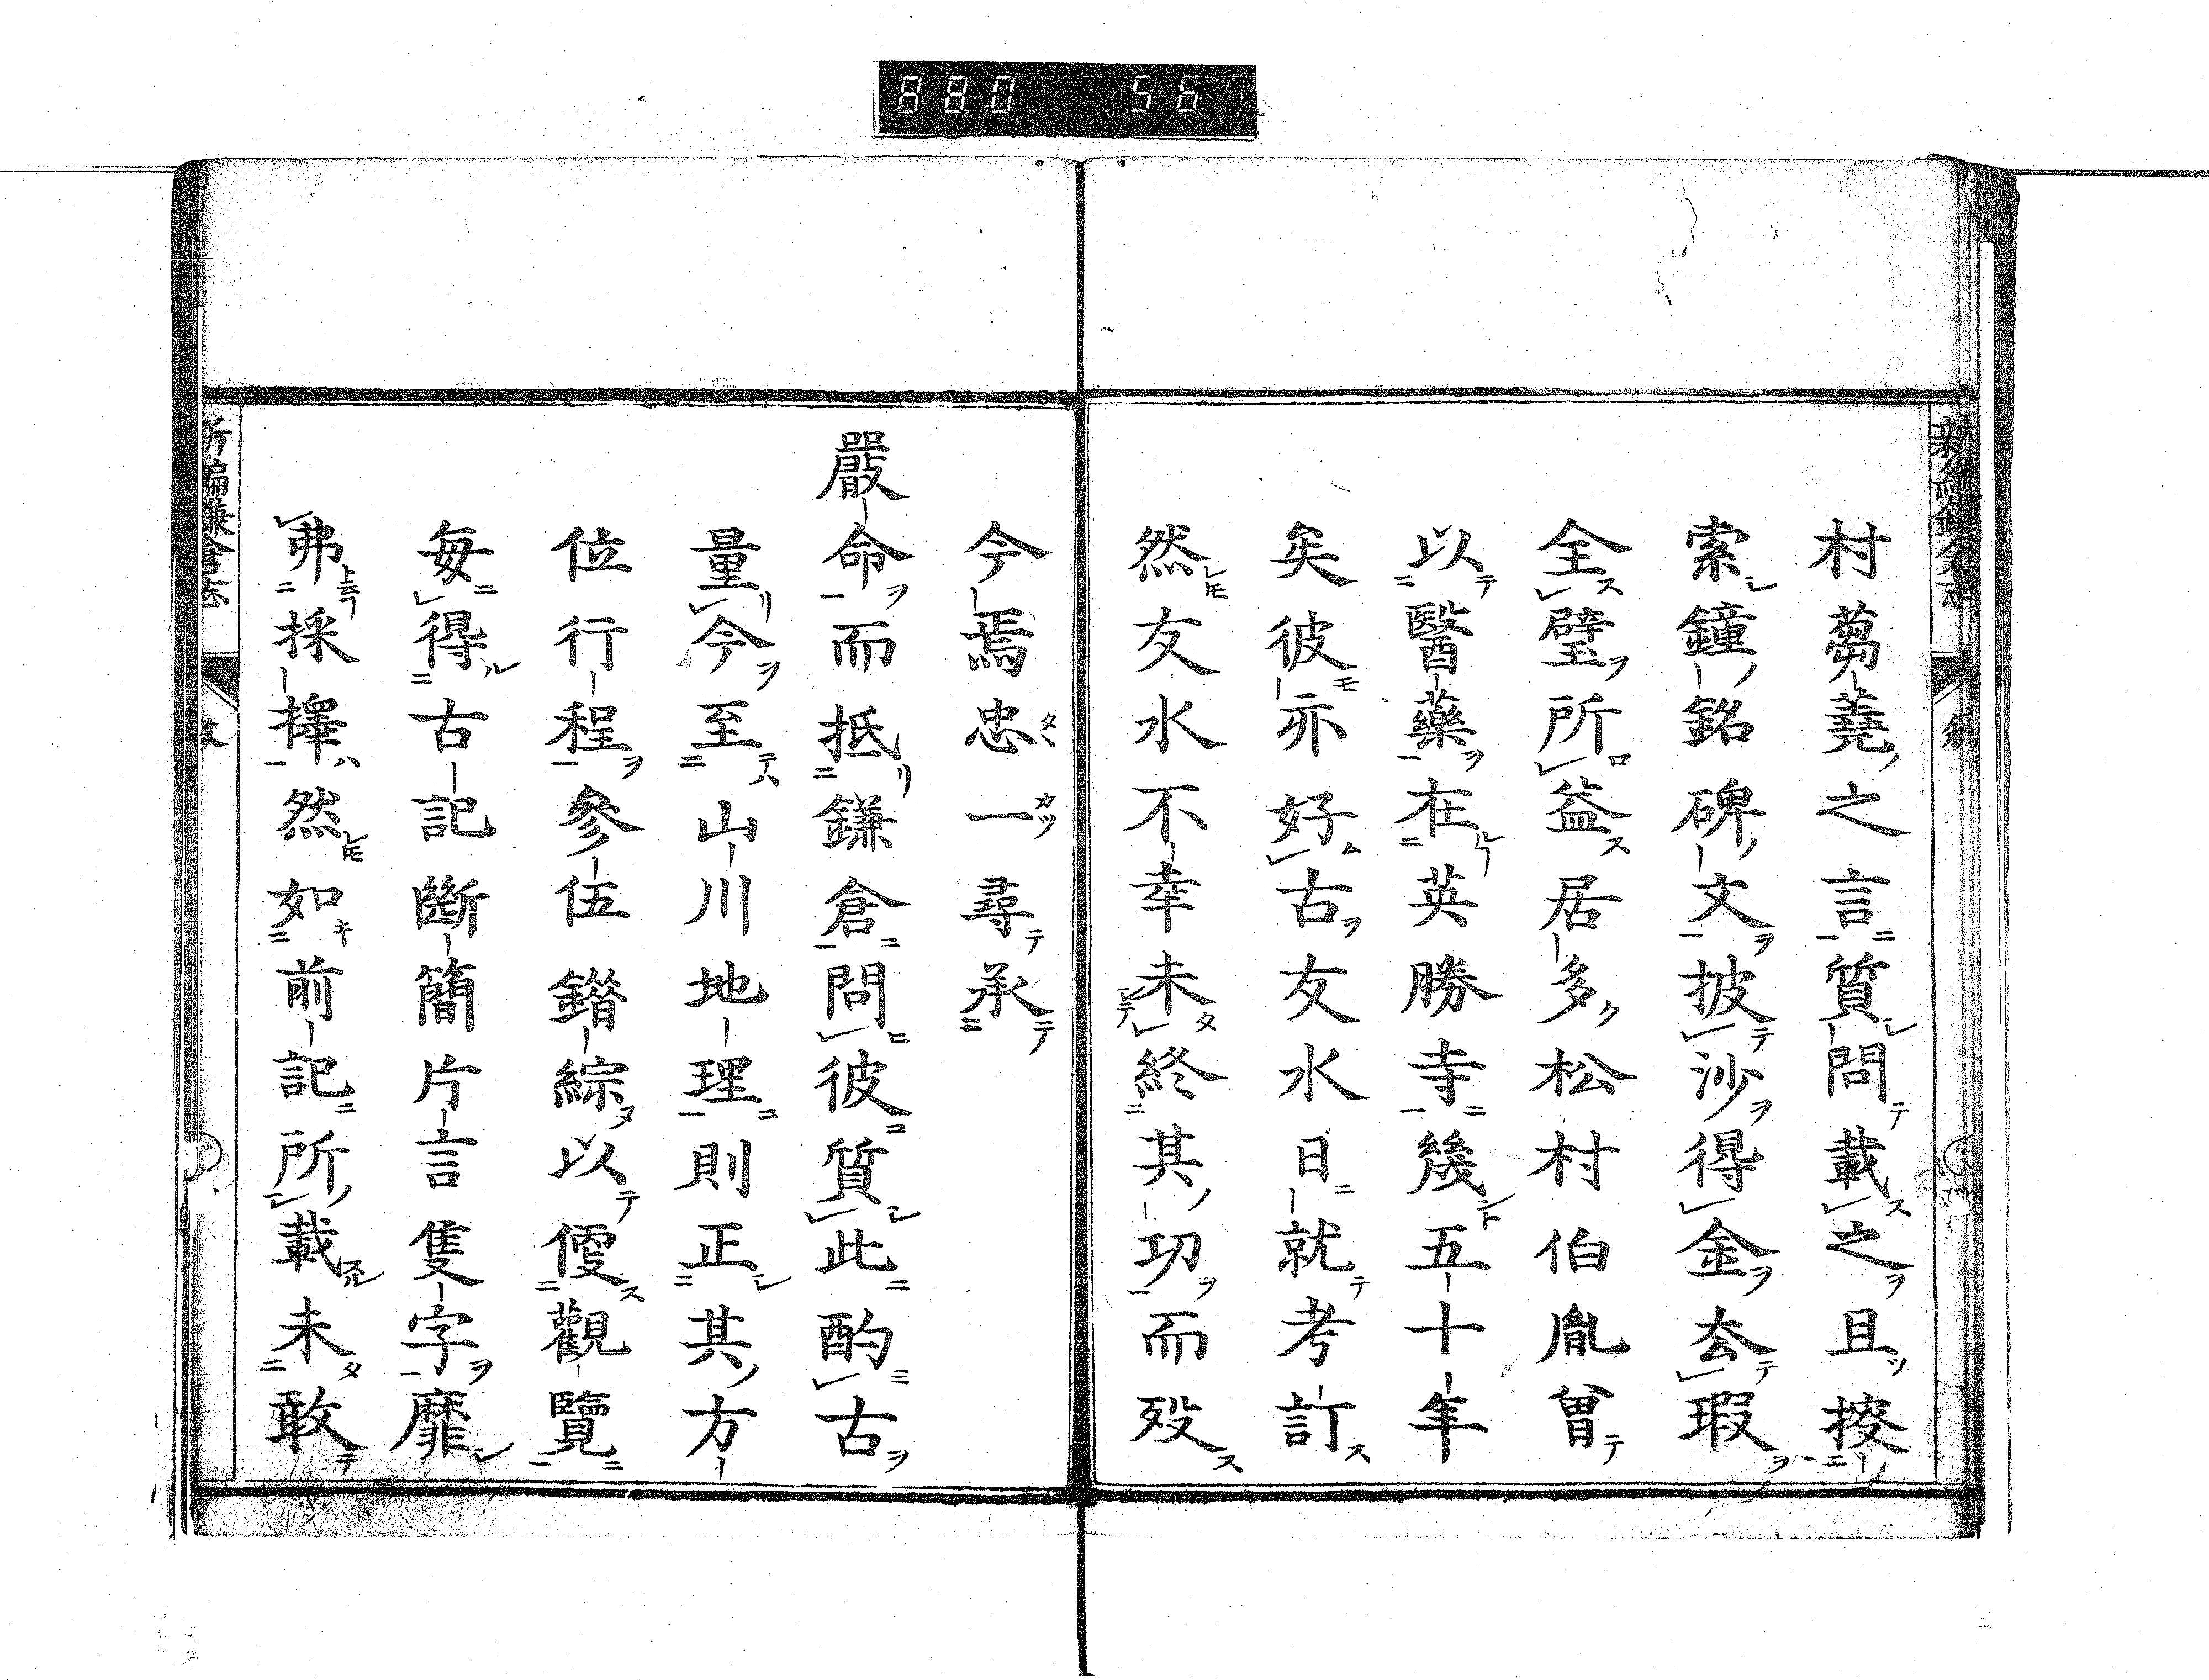 880 567
村蒭蕘之言質問載之且捜
索鐘銘碑文披沙得金去瑕
全璧所益居多松村伯胤曽
以醫藥在英勝寺幾五十年
矣彼亦好古友水日就考訂
然友水不幸未終其功而歿
今焉忠一尋承
嚴命而抵鎌倉問彼質此酌古
量今至山川地理則正其方
位行程參伍錯綜以便觀覽
毎得古記斷簡片言隻字靡
弗採擇然如前記所載未敢
新編鎌倉志